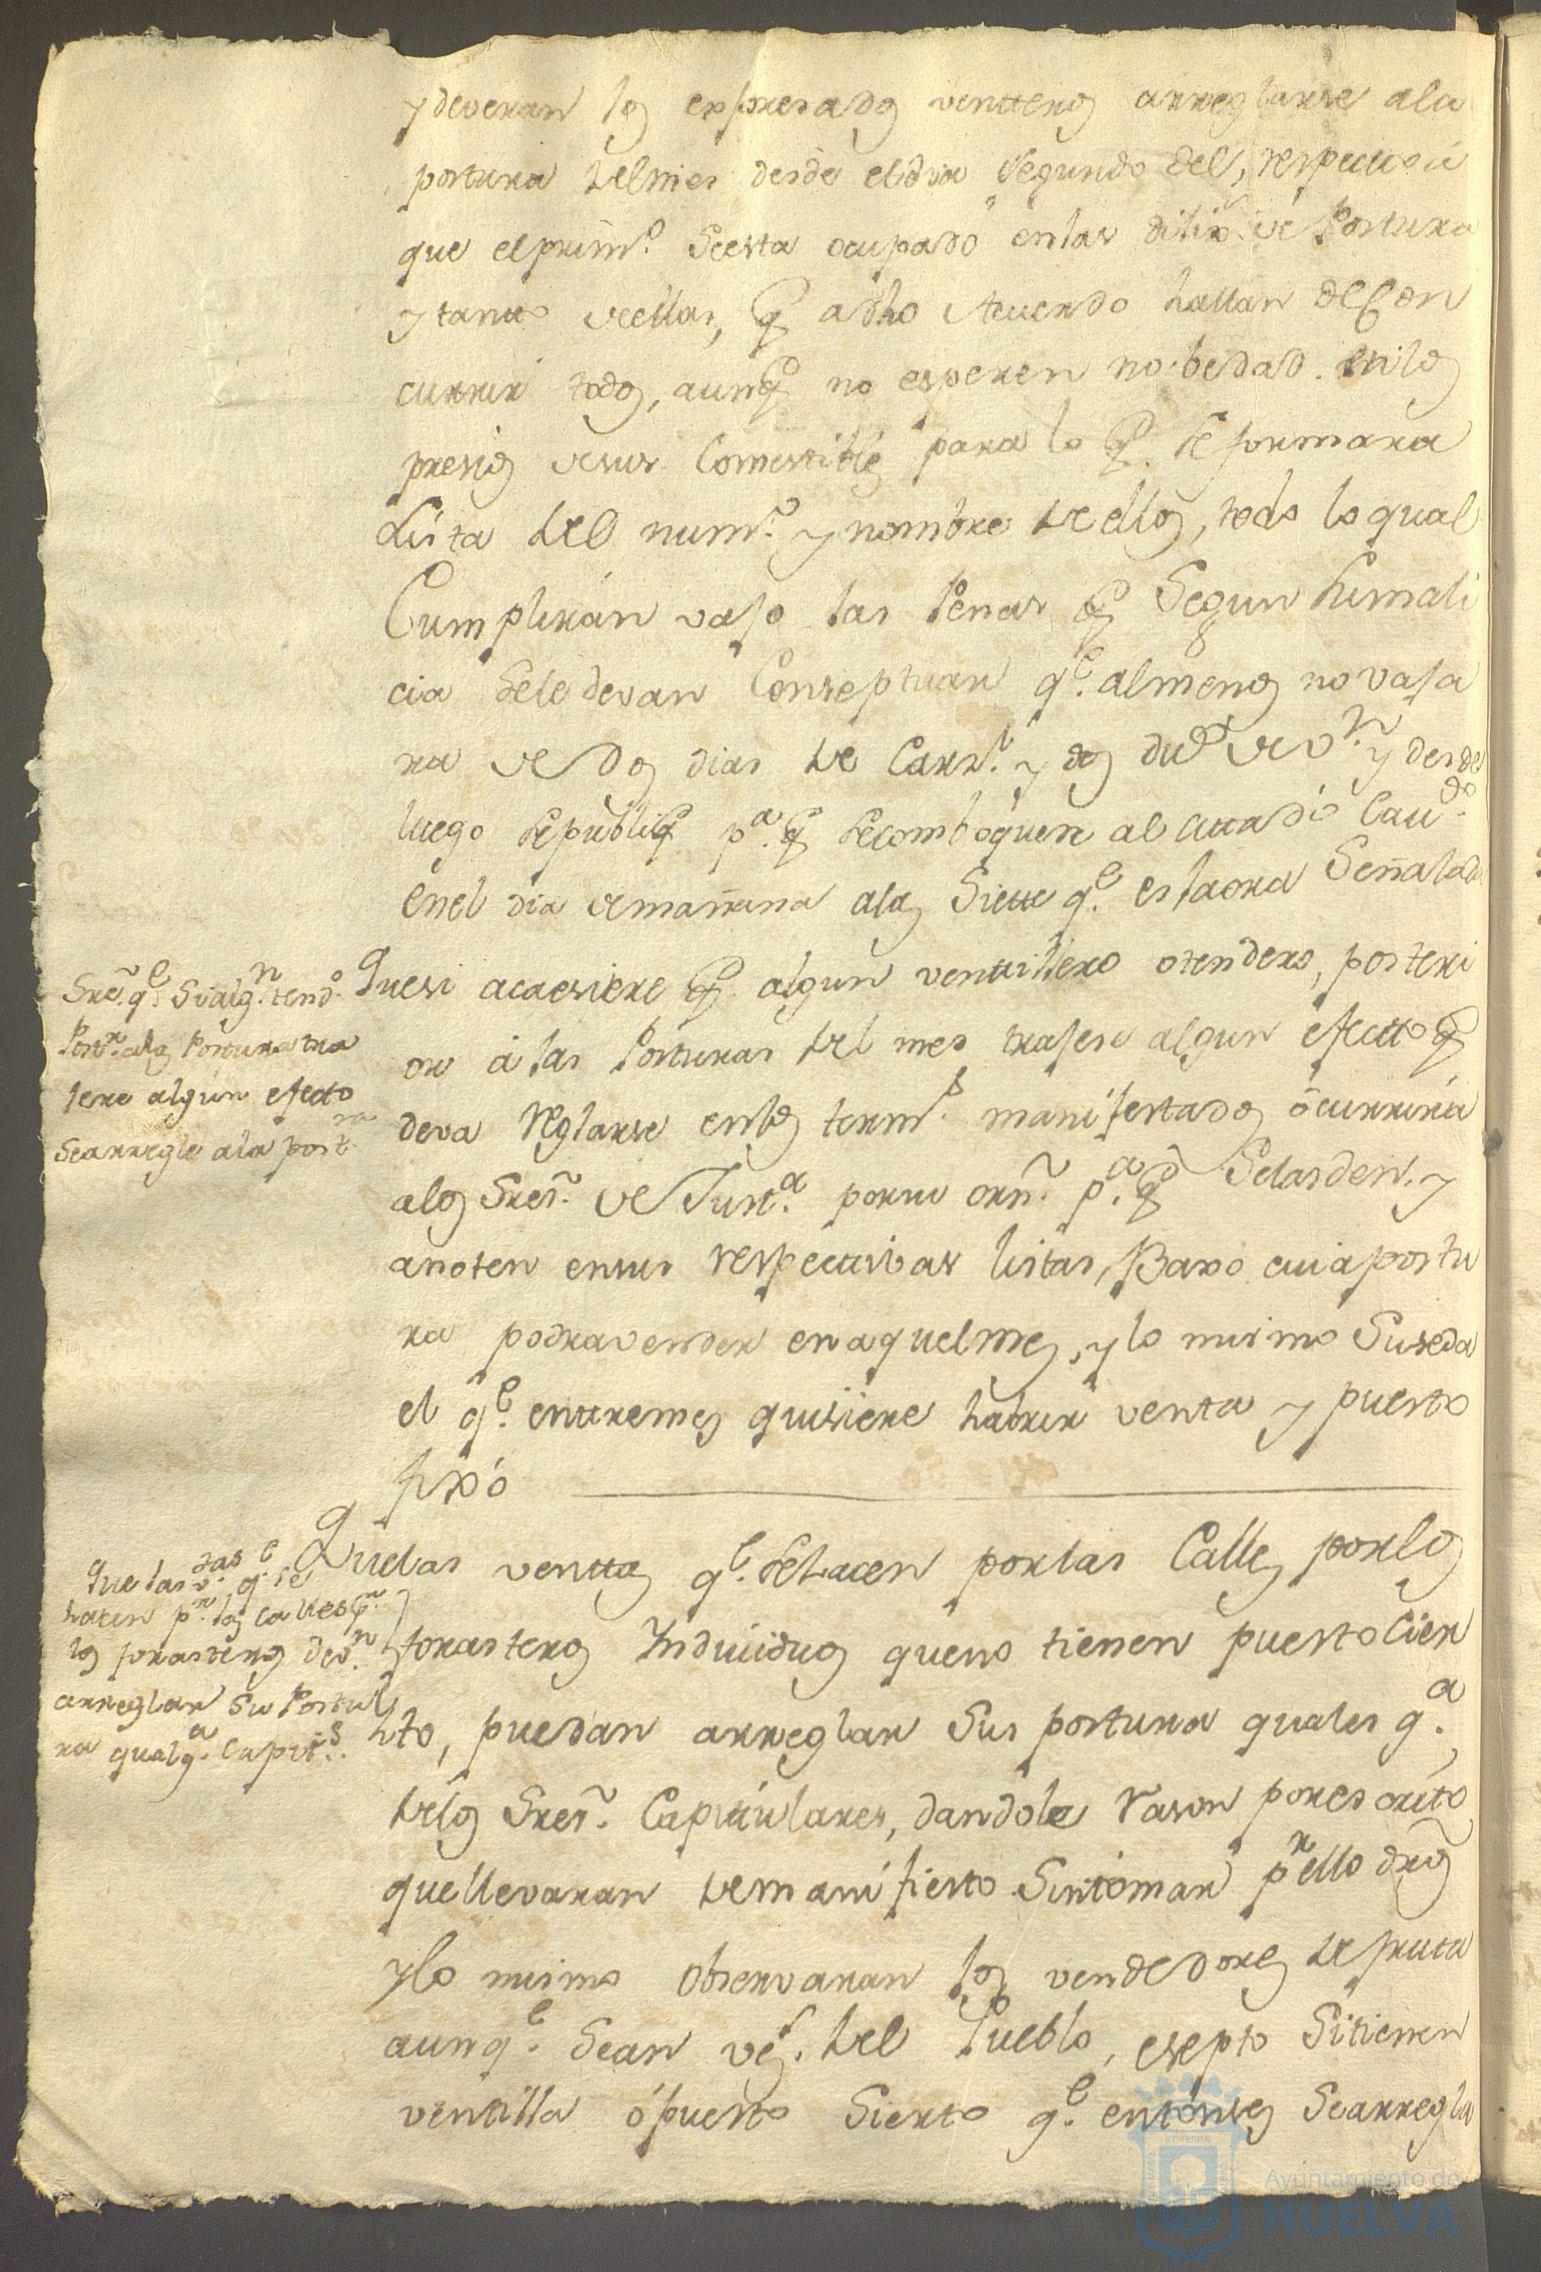 y deveran los expresados ventteros arreglarse ala
postura del mes desde el dia segundo del, respecto a
que el prim.º se esta ocupado en las dilix.s de Postura
y tanto de ellas, q.e a dho Acuerdo hallan de Con
currir todos, aunq.e no esperen nobedad. en los
presios de sus Comestibles para lo q.e se formara
Lista del num.º y nombre de ellos, todo lo qual
Cumpliran vajo las Penas q.e Segun su mali
cia se le devan Conseptuar q.e almenos no vaja
ra de dos dias de Carz.l y dos du.s de v.n y desde
luego se publiq.e p.a q.e se comboquen al cittado Cav.do
en el dia de mañana alas Siette q.e es la ora Señalada
Sres. q.e Si alg.n tend.º
Post.r alas Posturas tra
jere algun efecto
se arregle ala post.ra
Que si acaesiere q.e algun venttillero o tendero, posteri
or á las Posturas del mes trajese algun efectto q.e
deva reglarse en los term.s manifestados ocurrira
alos Sres. de Just.a por su orn. p.a q.e Se las den. y
anoten en sus respecttibas listas, Baxo cuia postu
ra podra vender en aquel mes, y lo mismo Suseda
el q.e enttremes quisiere habrir venta y puesto
fixó
Que las v.das q.e se
hacen p.r las calles p.r
los forasteros dev.n
arreglar su Postu
ra qualq.a Capit.s
Que las venttas q.e se hacen por las Calles por los
forasteros Individuos que no tienen puesto Cier
to, puedan arreglar Sus postura quales q.a
de los Sres. Capitulares, dandole rason por escrito
que llevaran de manifiesto Sin tomar p.r ello drõs
y lo mismo observaran los vendedores de fruta
aunq.e Sean ves.s del Pueblo, esepto Si tienen
ventilla ó puesto Sierto q.e entonses Se arregla
Ayuntamiento de
HUELVA